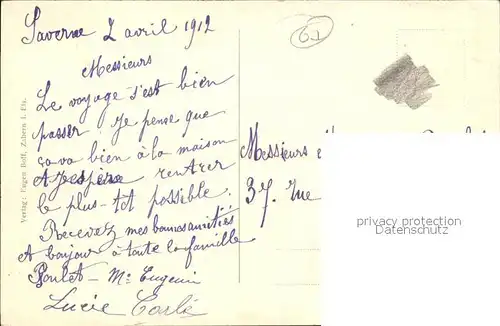 Saverne 2 avril 1912
61
Messieurs
Le voyage s'est bien
passer Je pense que
ça va bien à la maison
et J'espère rentrer
le plus-tôt possible.
Recevez mes bonnes amitiés
et bonjour à toute la famille
Poulet - Mr Eugenie
Lucie
Messieurs
37. rue
Verlag: Eugen Hoff, Zabern i. Els.
privacy protection